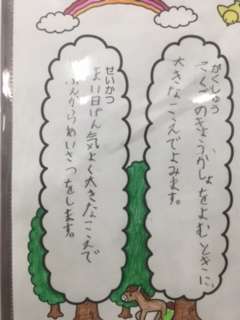 がくしゅう
こくごのきょうかしょをよむときに、
大きなこえでよみます。
せいかつ
まい日げん気よく大きなこえで
じぶんからあいさつをします。